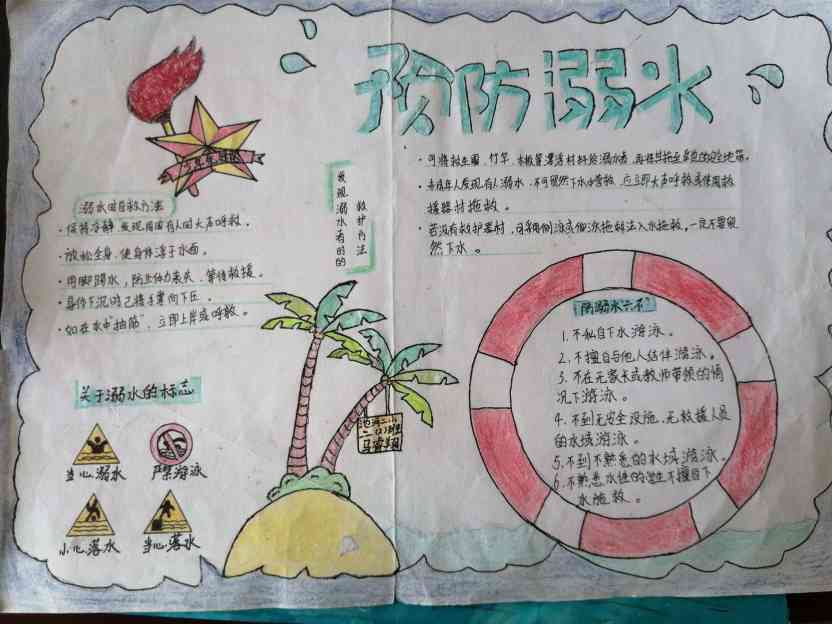 预防溺水
溺水的自救方法
· 保持冷静,发现周围有人时大声呼救。
· 放松全身,使身体浮于水面。
· 用脚踢水,防止体力丧失,等待救援。
· 身体下沉时己将手掌向下压。
· 如在水中"抽筋",立即上岸或呼救。
发现溺水者的的
救护方法
· 可将救生圈、竹竿、木板等漂浮材料给溺水者,再将其拖至
· 未成年人发现有人溺水,不可贸然下水营救,应立即大声呼救或使用救
援器材拖救。
· 若没有救护器材,可采用侧泳或仰泳拖救法入水拖救,一定不要贸
然下水。
关于溺水的标志
当心溺水
严禁游泳
小心落水
当心落水
防溺水六不
1. 不私自下水游泳。
2. 不擅自与他人结伴游泳。
3. 不在无家长或教师带领的情
况下游泳。
4. 不到无安全设施、无救援人员
的水域游泳。
5. 不到不熟悉的水域游泳。
6. 不熟悉水性的学生不擅自下
水施救。